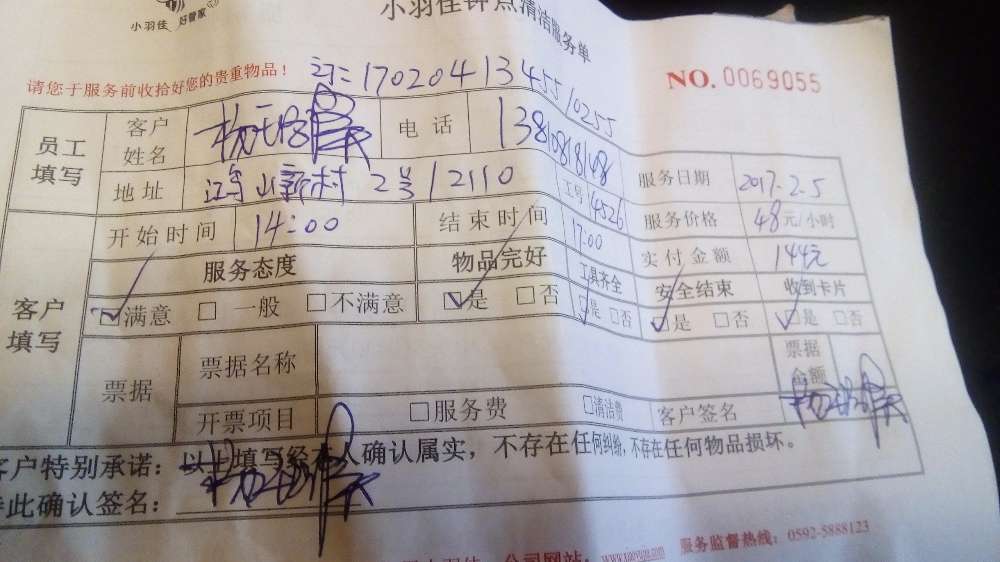 小羽佳 好管家
小羽佳钟点清洁服务单
请您于服务前收拾好您的贵重物品！ 170204134551 0255 NO.0069055
员工填写 客户姓名 电话 13810818148
地址 2号12110 工号 4526 服务日期 2017.2.5
开始时间 14:00 结束时间 17:00 服务价格 48元/小时
客户填写 服务态度 物品完好 工具齐全 实付金额 144元
安全结束 收到卡片
☑满意 □一般 □不满意 ☑是 □否 ☑是 □否 ☑是 □否 ☑是 □否
票据 票据名称 票据金额
开票项目 □服务费 □清洁费 客户签名
客户特别承诺：以上填写经本人确认属实，不存在任何纠纷，不存在任何物品损坏。
特此确认签名：
公司网站： 服务监督热线：0592-5888123